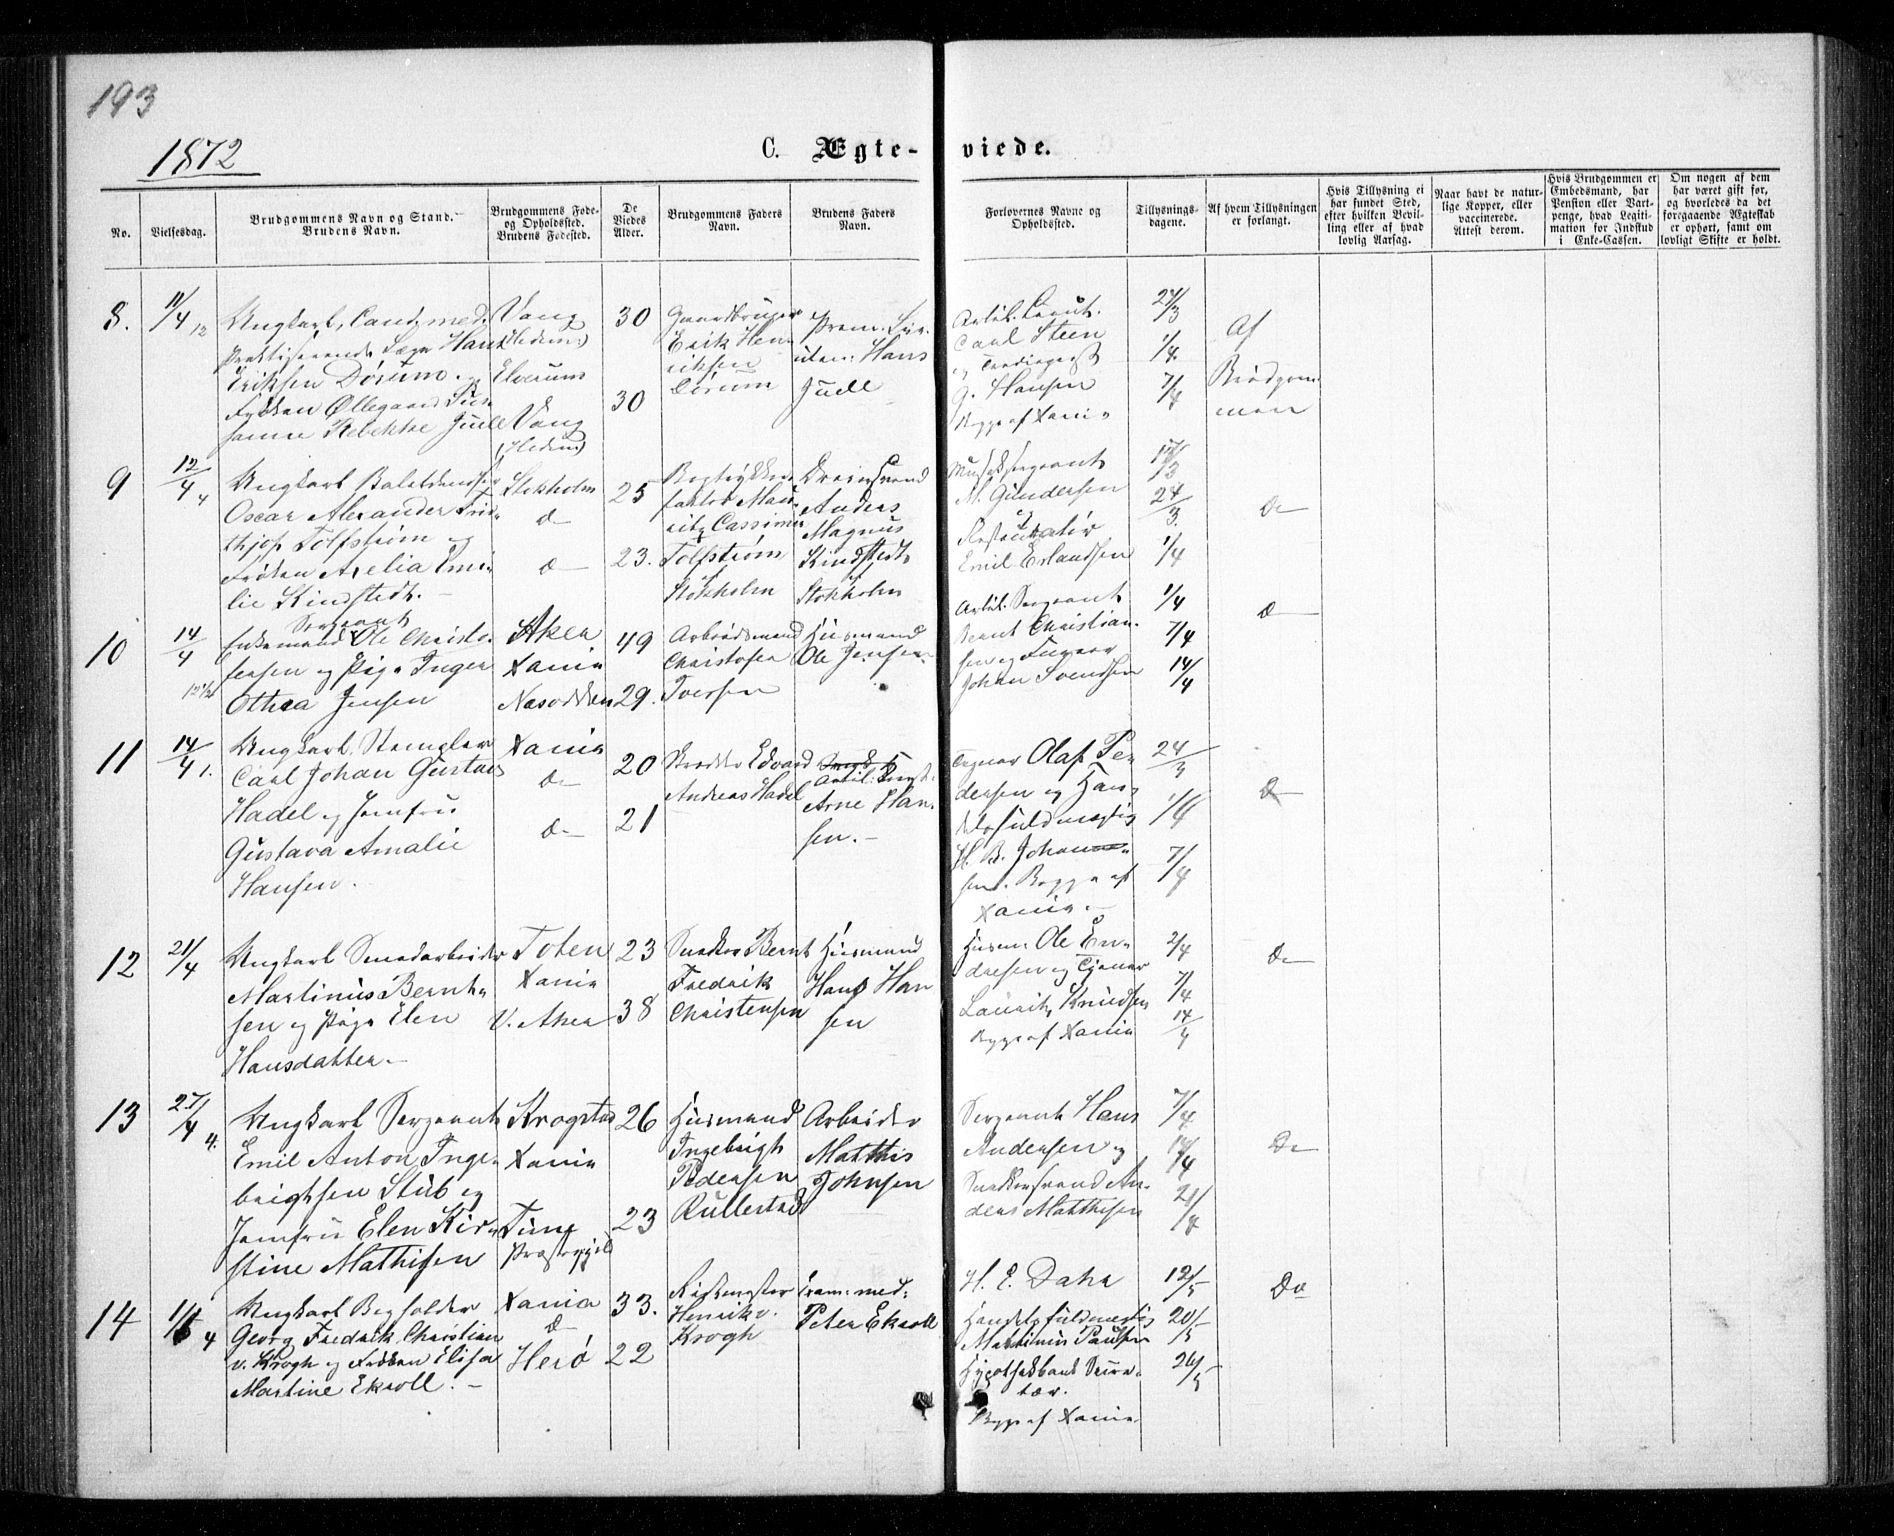 193
1872
C. Ægte-viede.
No.
Vielsesdag.
Brudgommens Navn og Stand.
Brudens Navn.
Brudgommens Føde-
og Opholdssted.
Brudens Fødested.
De
Viedes
Alder.
Brudgommens Faders
Navn.
Brudens Faders
Navn.
Forlovernes Navne og
Opholdssted.
Tillysnings-
dagene.
Af hvem Tillysningen
er forlangt.
Hvis Tillysning ei
har fundet Sted,
efter hvilken Bevil-
ling eller af hvad
lovlig Aarsag.
Naar havt de natur-
lige Kopper, eller
vaccinerede.
Attest derom.
Hvis Brudgommen er
Embedsmand, har
Pension eller Vart-
penge, hvad Legiti-
mation for Indskud
i Enke-Cassen.
Om nogen af dem
har været gift før,
og hvorledes da det
foregaaende Ægteskab
er ophørt, samt om
lovligt Skifte er holdt.
8.
11/4 12
Ungkarl, Cand. med.
praktiserende Læge Hans
Eriksen Dørum og
Frøken Øllegaard Su-
sanne Rebekke Juell
Vang
(Hedem)
Elverum
Vang
(Hedem)
30
30
Gaardbruger
Erik Hen-
riksen
Dørum
Prem. Lieu-
tn. Hans
Juell
Artil. Lieut.
Carl Steen
og
G. Hansen
Begge af Xania
24/3
1/4
7/4
Af
Brudgom-
men
9
12/4 4
Ungkarl Baletdandser
Oscar Alexander Frid-
thjof Tolfstrøm og
Frøken Axelia Emi-
lie Kindstedt.
Stokholm
do
do
25
23.
Bogtrykker-
faktor Mau-
ritz Cassimir
Tolfstrøm
Stokholm
Anders
Magnus
Kindstedt
Stokholm
Musiksergeant
M. Gundersen
og
Restauratør
Emil Erlandsen
17/3
24/3.
1/4
do
10
14/4
12 1/2
Sergeant
Enkemand Ole Christo-
fersen og Pige Inger
Othea Jensen
Aker
Xania
Næsodden
49
29.
Arbeidsmand
Christofer
Iversen
Husmand
Ole Jensen
Artil. Sergeant
Bernt Christian-
sen og
Johan Svendsen
1/4
7/4
14/4
do
11
14/4 1.
Ungkarl Stempler
Carl Johan Gustav
Hadel og Jomfru
Gustava Amalie
Hansen.
Xania
do
do
20
21
Skrædder Edvard
Andreas Hadel
Arne Han-
sen.
Olaf Pe-
dersen og Han-
delsfuldmægtig
H. B. Johan-
sen. Begge af
Xania.
24/3
1/4
7/4
do
12
21/4
Ungkarl Smedarbeider
Martinus Bernt-
sen og Pige Elen
Hansdatter.
Toten
Xania
V. Aker
23
38
Snedker Bernt
Fredrik
Christensen
Husmand
Hans Han
sen
Husm. Ole En-
dresen og Tjener
Lauritz Knudsen
Begge af Xania
2/4
7/4
14/4
do
13
27/4 4.
Ungkarl Sergeant
Emil Anton Inge-
brigtsen Stub og
Jomfru Elen Kir-
stine Mathisen
Krogstad
Xania
Tune
Præstegjeld
26
23
Husmand
Ingebrigt
Pedersen
Rullestad
Arbeider
Matthis
Johnsen
Sergeant Hans
Andersen og
Snedkersvend An-
ders Matthisen
7/4
14/4
21/4
do
14
4
Ungkarl Bogholder
Georg Fredrik Christian
v. Krogh og Frøken Elisa
Martine Ekroll.
Xania
do
Herø
33.
22
Ritmester
Henrik v.
Krogh
Exam. med:
Peter Ekroll
H. E. Dahr
Handelsfuldmægtig
Mathinus Paulsen
Hypothekbank Secre-
tær.
Begge af Xania
12/5
20/5
26/5
do